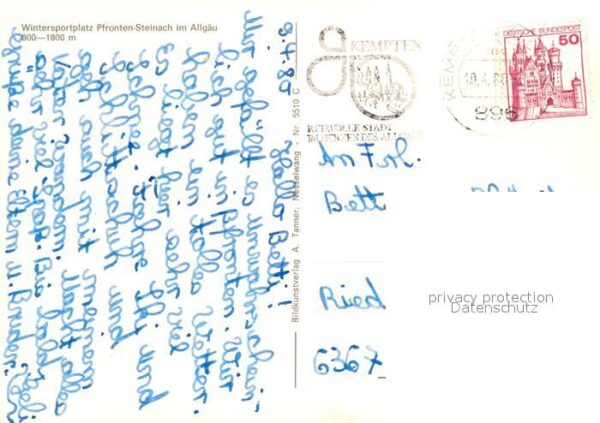 Wintersportplatz Pfronten-Steinach im Allgäu
800—1800 m
9.4.80
Hallo Betti!
Mir gefällt es unwahrschein-
lich gut in Pfronten. Wir
haben ein tolles Wetter.
Es liegt hier sehr viel
Schnee. Ski und
Schlittschuh und
geh auch mit meinem
Vater macht alles
sehr viel Spaß. Bis bald
grüße deine Eltern u. Bruder.
Bildkunstverlag A. Tanner, Nesselwang - Nr 5510 C
KEMPTEN
REIZVOLLE STADT
IM HERZEN DES
KEMP
10.4.80
896
DEUTSCHE BUNDESPOST
50
An Frl.
Bett
Ried
6367
privacy protection
Datenschutz